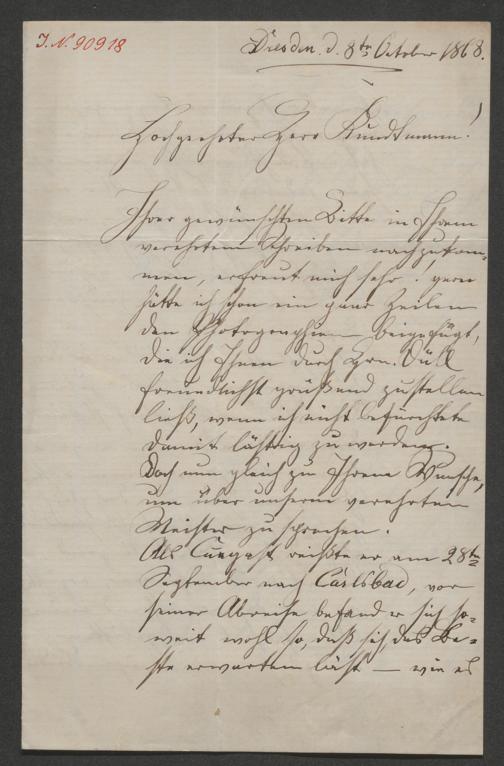 J. N. 90918
Dresden. d. 8ten October 1868.
Hochgeehrter Herr Kundtmann!
Ihrer gewünschten Bitte in Ihrem
verehrtem Schreiben nachzukom-
men, erfreut mich sehr. gern
hätte ich schon ein paar Zeilen
den Photographien beigefügt,
die ich Ihnen durch Hrn. Düll
freundlichst grüßend zustellen
ließ, wenn ich nicht befürchtete
damit lästig zu werden.
Doch nun gleich zu Ihrem Wunsche,
um über unserem verehrten
Meister zu sprechen.
Als Curgast reißte er am 28ten
September nach Carlsbad, vor
seiner Abreise befand er sich so-
weit wohl so, daß sich das Be-
ste erwarten läßt — wie es